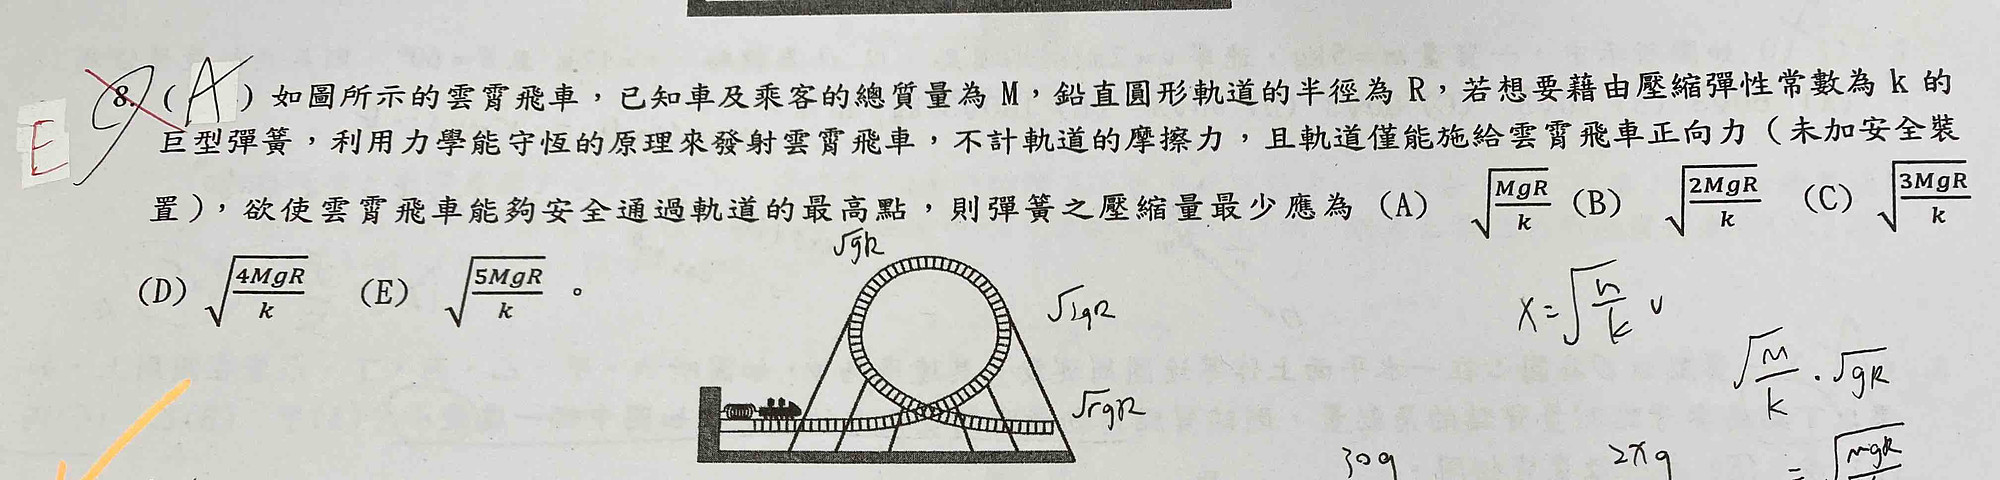 E 8. ( A ) 如圖所示的雲霄飛車，已知車及乘客的總質量為 M，鉛直圓形軌道的半徑為 R，若想要藉由壓縮彈性常數為 k 的
巨型彈簧，利用力學能守恆的原理來發射雲霄飛車，不計軌道的摩擦力，且軌道僅能施給雲霄飛車正向力（未加安全裝
置），欲使雲霄飛車能夠安全通過軌道的最高點，則彈簧之壓縮量最少應為 (A) √(MgR/k) (B) √(2MgR/k) (C) √(3MgR/k)
(D) √(4MgR/k) (E) √(5MgR/k) 。
√gR
x=√(m/k) v
√(M/k) · √gR